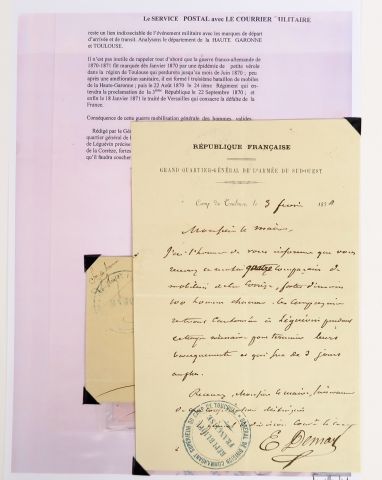 Le SERVICE POSTAL avec LE COURRIER MILITAIRE
reste un lien indissociable de l'évènement militaire avec les marques de départ
d'arrivée et de transit. Analysons le département de la HAUTE GARONNE
et TOULOUSE.
Il n'est pas inutile de rappeler tout d'abord que la guerre franco-allemande de
1870-1871 fit marquée dès Janvier 1870 par une épidémie de petite vérole
dans la région de Toulouse qui perdurera jusqu'au mois de Juin 1870 ; peu
après une amélioration sanitaire, il est formé l troisième bataillon de mobiles
de la Haute-Garonne ; puis le 22 Août 1870 le 24 ième Régiment qui
tendra la proclamation de la 3ème République le 22 Septembre 1870 ;
enfin le 18 Janvier 1871 le traité de Versailles qui consacre la défaite de la
France.
Conséquence de cette guerre mobilisation générale des hommes valides.
Rédigé par le Gé
quartier général de
de Léguevin précise
de la Corrèze, fortes
qu'il faudra coucher
RÉPUBLIQUE FRANÇAISE
GRAND QUARTIER-GÉNÉRAL DE L'ARMÉE DU SUD-OUEST
Camp de Toulouse, le 3 février 1871
Monsieur le maire,
J'ai l'honneur de vous informer que vous
recevrez quatre compagnies de
mobilisés de la Corrèze, fortes d'environ
100 hommes chacune. Les compagnies
resteront cantonnées à Léguevin pendant
pour terminer leurs
et qui de 3 jours
Recevez, Monsieur le maire, l'assurance
de ma considération distinguée
division
E Demay
GÉNÉRAL DE DIVISION COMMANDANT SUPÉRIEUR DU CAMP DE TOULOUSE
RÉPUBLIQUE FRANÇAISE